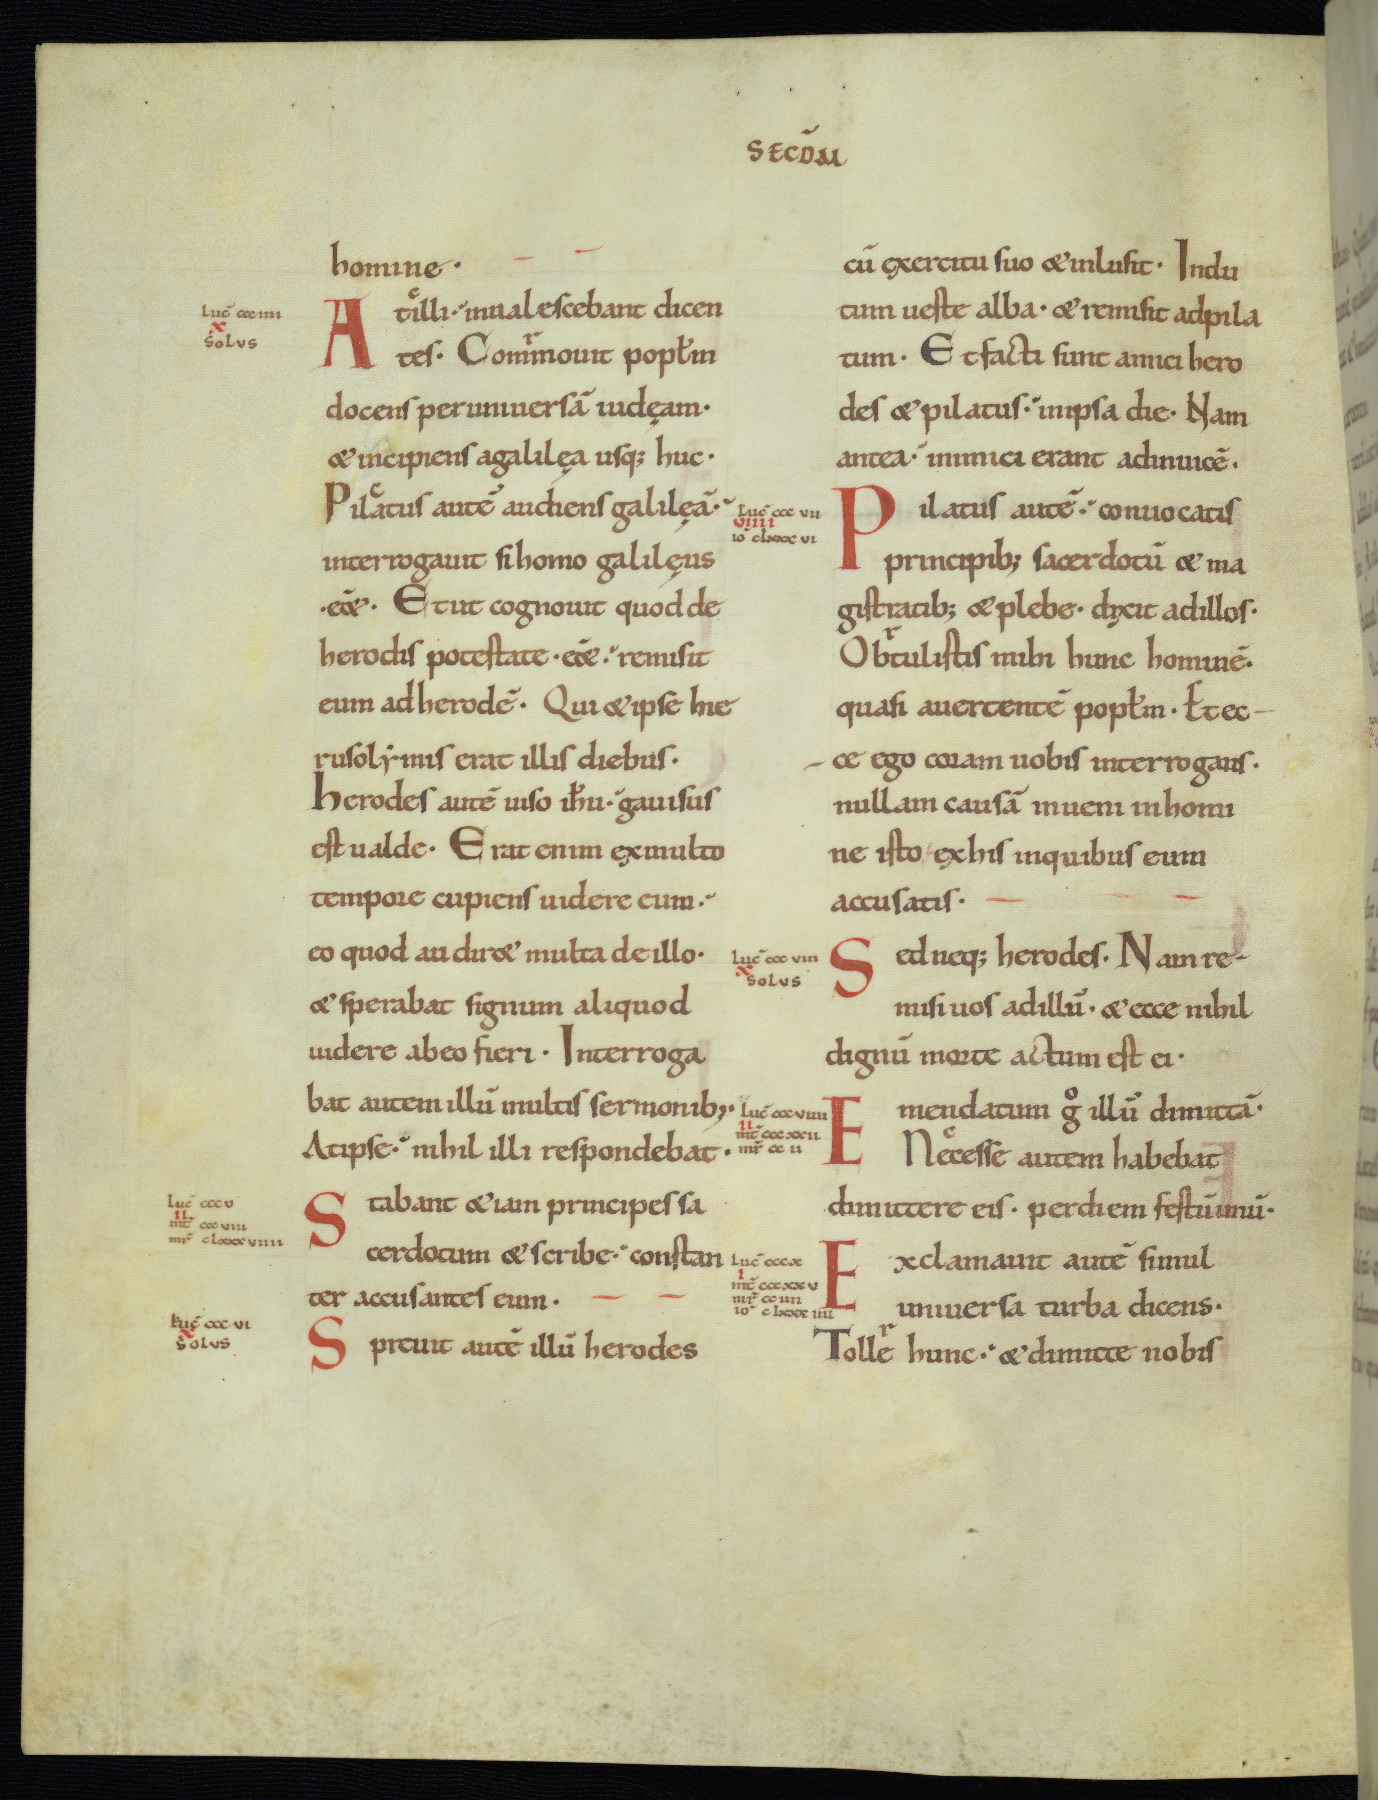 SECŪM
homine·
Luc̄ ccciiii
X
Solus
At illi· inualescebant dicen
tes· Commouit popl̄m
docens peruniuersā iudęam·
& incipiens agalilęa usq; huc·
Pilatus autē audiens galilęā·
interrogauit si homo galilęus
·eē&· Et ut cognouit quod de
herodis potestate·eē&· remisit
eum adherodē· Qui & ipse hie
rusolẏmis erat illis diebus·
herodes autē uiso ih̄u· gauisus
est ualde· Erat enim exmulto
tempore cupiens uidere eum·
eo quod audir& multa de illo·
& sperabat signum aliquod
uidere abeo fieri· Interroga
bat autem illū multis sermonib;·
Atipse· nihil illi respondebat·
Luc̄ cccv
II
mt̄ cccviii
mr̄ clxxxviiii
Stabant &iam principes sa
cerdotum & scribe· constan
ter accusantes eum·
Luc̄ cccvi
X
Solus
Spreuit autē illū herodes
cū exercitu suo & inlusit· Indu
tum ueste alba· & remisit adpila
tum· Et facti sunt amici hero
des & pilatus· inipsa die· Nam
antea· inimici erant adinuicē·
Luc̄ cccvii
VIIII
io clxxxvi
Pilatus autē· conuocatis
principib; sacerdotū & ma
gistratib; & plebe· dixit adillos·
Obtulistis mihi hunc hominē·
quasi auertentē popl̄m· Et ec
ce ego coram uobis interrogans·
nullam causā inueni inhomi
ne isto exhis inquibus eum
accusatis·
Luc̄ cccviii
X
Solus
Sed neq; herodes· Nam re-
misi uos adillū· & ecce nihil
dignū morte actum est ei·
Luc̄ cccviiii
II
mt̄ cccxxii
mr̄ ccii
Emendatum g̊ illū dimittā·
Necesse autem habebat
dimittere eis· perdiem festū unū·
Luc̄ cccx
I
mt̄ cccxxv
mr̄ cciiii
io clxxxiiii
Exclamauit autē simul
uniuersa turba dicens·
Tolle hunc· & dimitte nobis